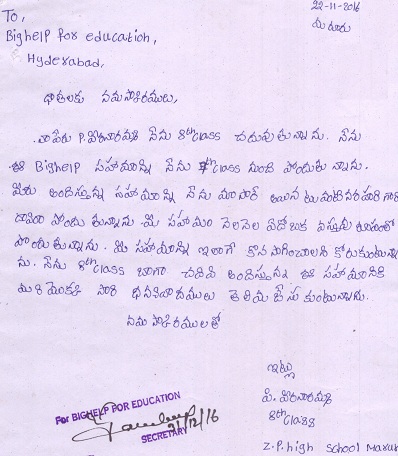 To,
22-11-2016
Bighelp for education,
మ రూరు
Hyderabad,
దాతలకు నమస్కారములు,
నా పేరు P. వీరనారమ్మ నేను 8th class చదువుతున్నాను. నేను
ఈ Bighelp సహాయాన్ని నేను 7th class నుంచి పొందుతున్నాను.
మీరు అందిస్తున్న సహాయాన్ని నేను మా సార్ అయిన గారి
ద్వారా పొందుతున్నాను. మీ సహాయం నెలనెల ఏదో ఒక వస్తువు రూపంలో
పొందుతున్నాను. మీ సహాయాన్ని ఇలాగే కొనసాగించాలని కోరుకుంటున్నా
ను. నేను 8th class బాగా చదివి అందిస్తున్న ఈ సహాయానికి
మరి యొక్క సారి ధన్యవాదములు తెలియజేసుకుంటున్నాను.
నమస్కారములతో
ఇట్లు
పి. వీరనారమ్మ
8th class
Z.P. high school
For BIGHELP FOR EDUCATION
21/12/16
SECRETARY